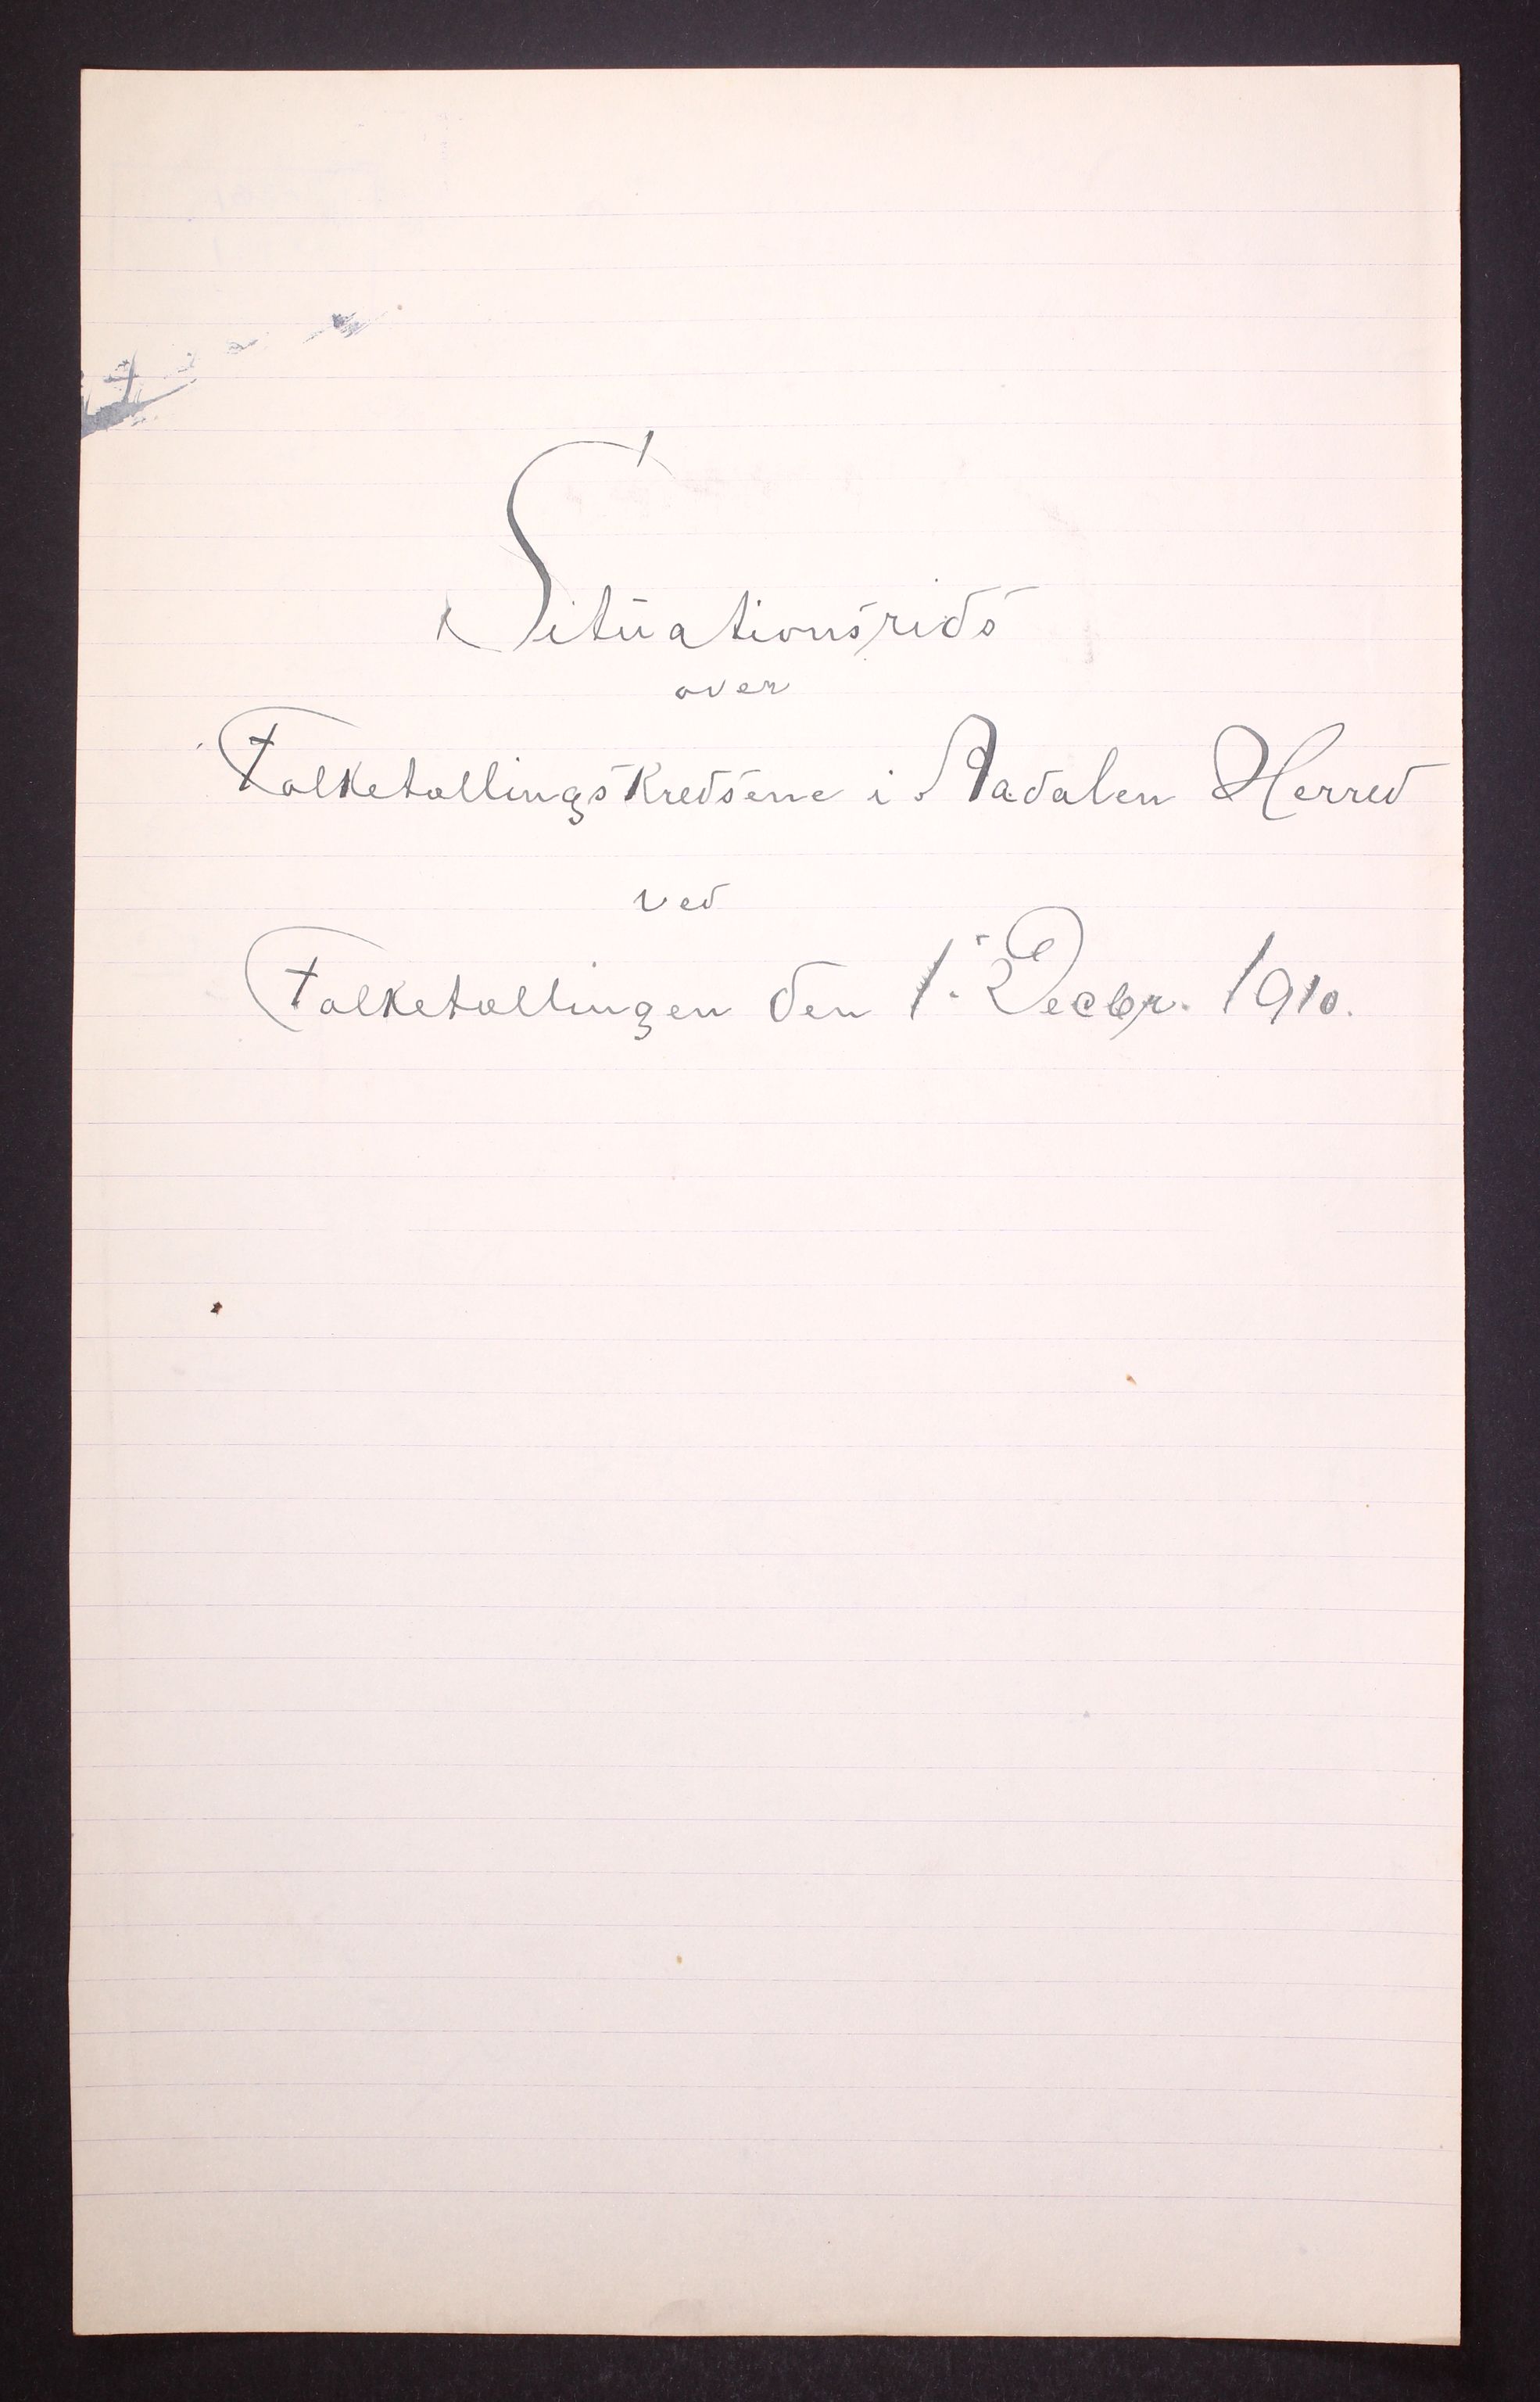 Situationsrids
over
Folketællingskredsene i Aadalen Herred
ved
Folketællingen den 1. Decbr. 1910.